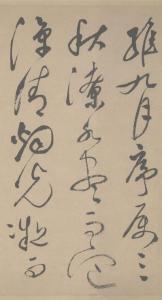 維九月序屬三
秋潦水盡而寒
潭清煙光凝而